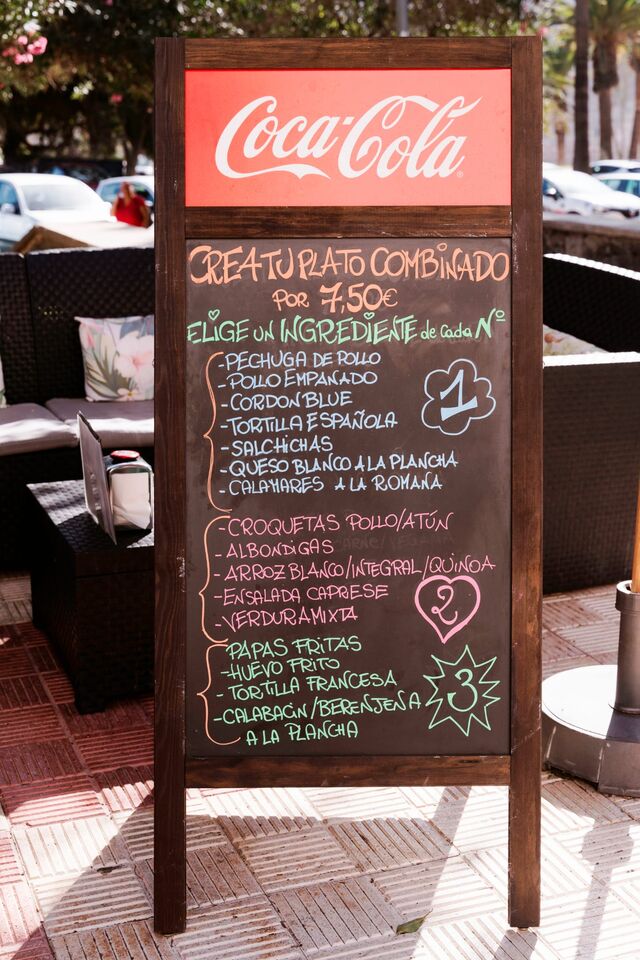 Coca-Cola
CREA TU PLATO COMBINADO
POR 7,50€
ELIGE UN INGREDIENTE de cada Nº
-PECHUGA DE POLLO
-POLLO EMPANADO
-CORDON BLUE
-TORTILLA ESPAÑOLA
-SALCHICHAS
-QUESO BLANCO A LA PLANCHA
-CALAMARES A LA ROMANA
1
-CROQUETAS POLLO/ATÚN
-ALBONDIGAS
-ARROZ BLANCO/INTEGRAL/QUINOA
-ENSALADA CAPRESE
-VERDURA MIXTA
2
-PAPAS FRITAS
-HUEVO FRITO
-TORTILLA FRANCESA
-CALABACIN/BERENJENA
A LA PLANCHA
3